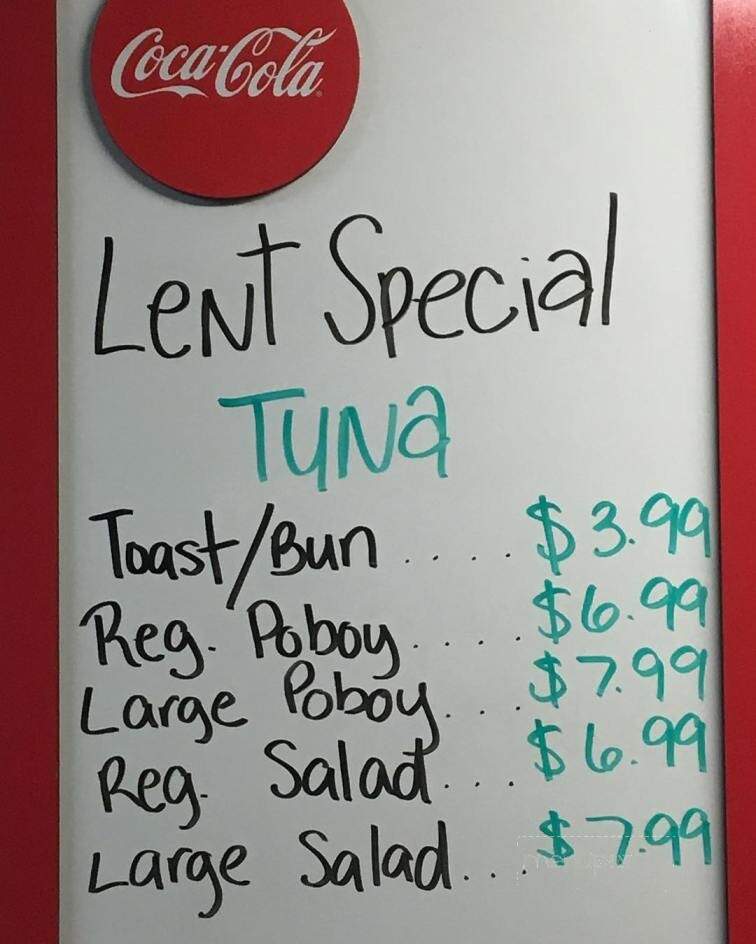 Coca-Cola
Lent Special
Tuna
Toast/Bun .... $3.99
Reg. Poboy .... $6.99
Large Poboy ... $7.99
Reg. Salad ... $6.99
Large Salad ... $7.99